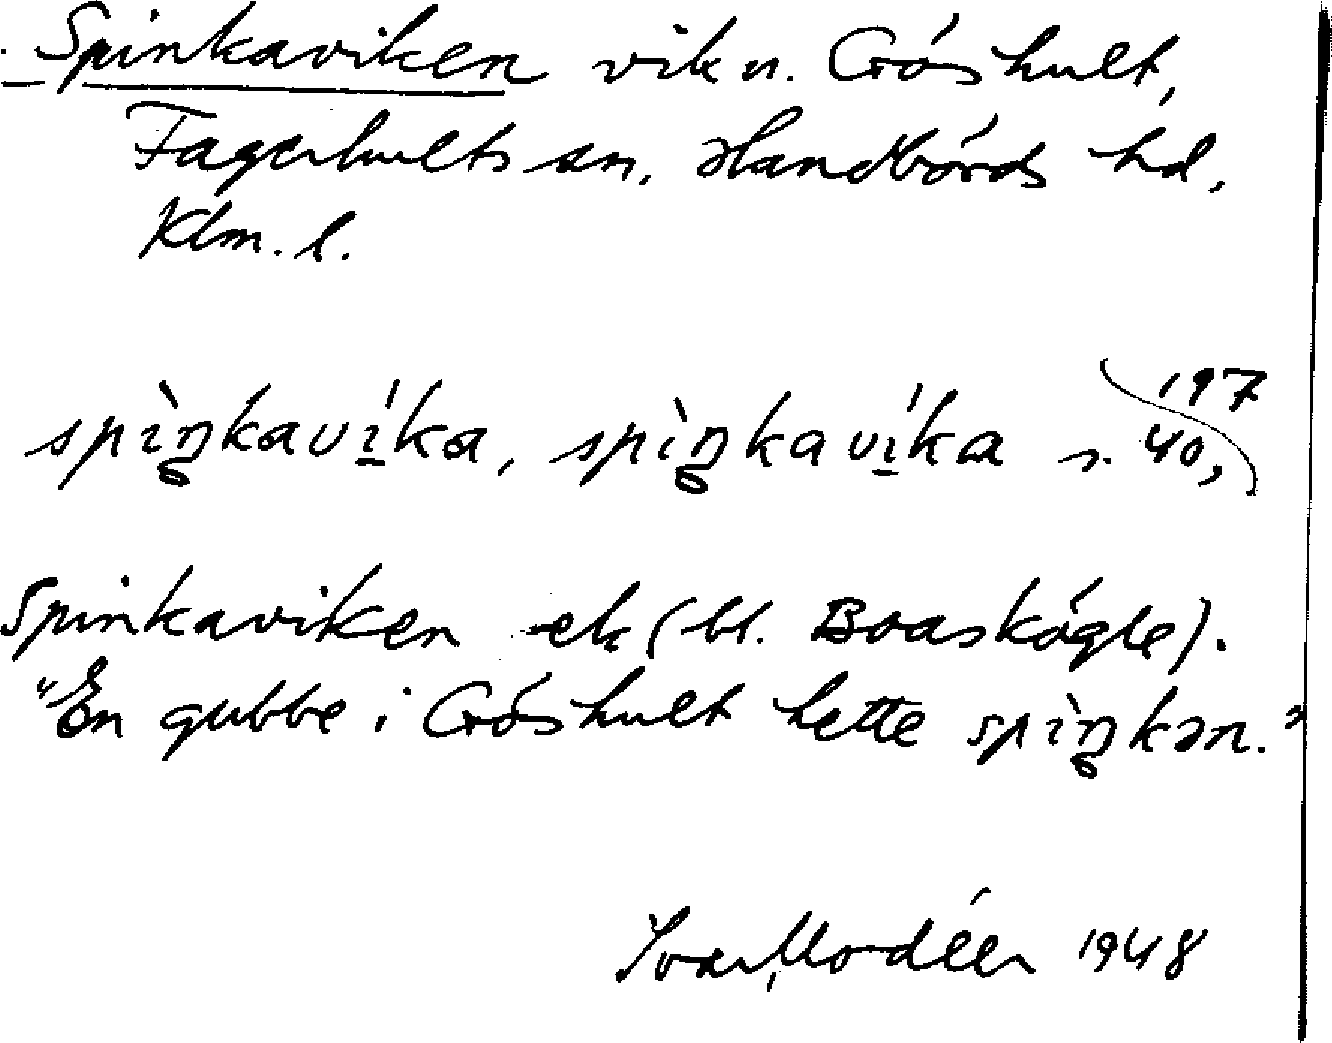 Spinkaviken vik v. Gröshult,
Fagerhults sn, Handbörds hd,
Klm. l.
spìŋkavíka, spìŋkavíka s. 40, 197
Spinkaviken ek (bl. Boaskögle).
"En gubbe i Gröshult hette spìŋkən."
Ivar Modéer 1948